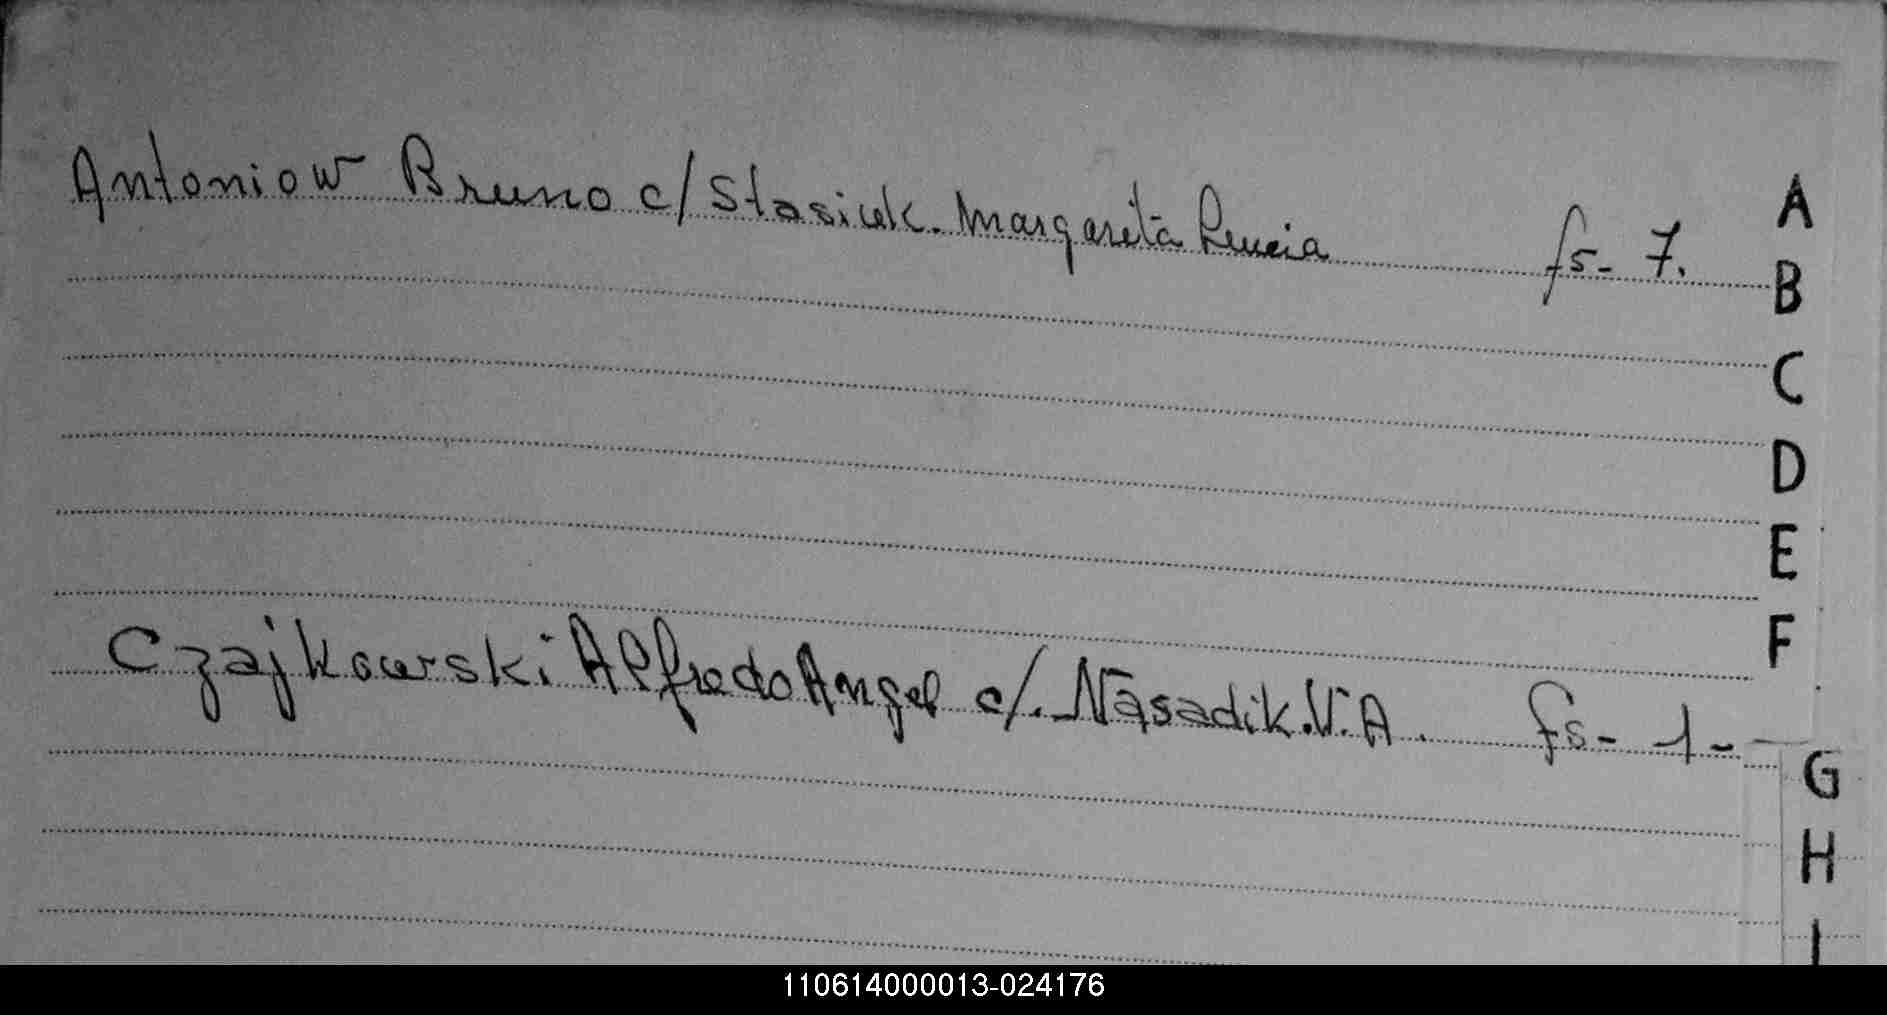 Antoniow Bruno c/ Stasiuk. Margarita Lucia fs- 7.
A
B
C
D
E
F
Czajkowski Alfredo Angel c/. Nasadik. V. A. fs- 1-
G
H
I
110614000013-024176